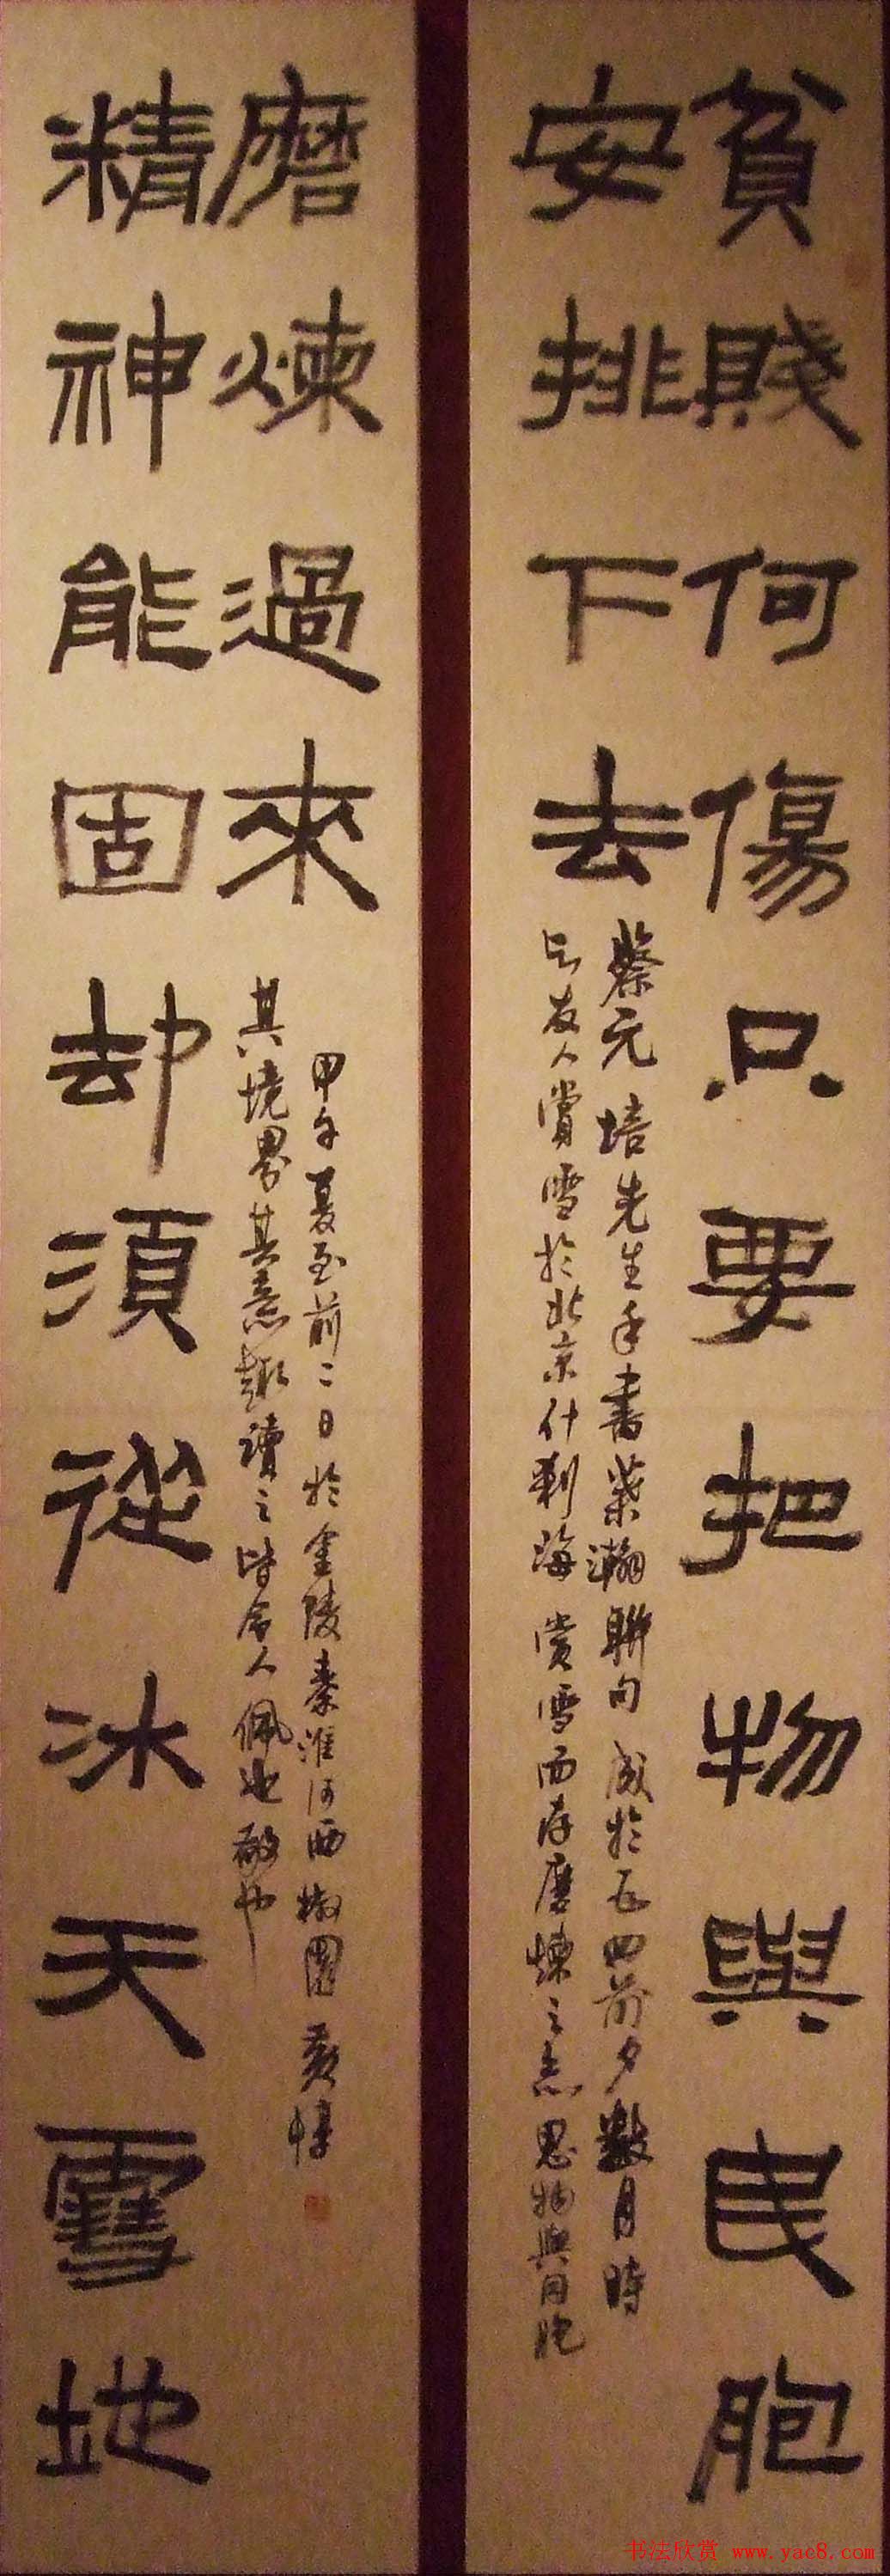 貧賤何傷只要把物與民胞
安排下去
蔡元培先生手書葉瀚聯句成於五四前夕數月時
與友人賞雪於北京什刹海賞雪而存磨煉之志思物與同胞
精神能固却須從冰天雪地
磨煉過來
其境界其意趣讀之皆令人佩也敬也
甲午夏至前二日於金陵秦淮河西椒園黃惇
书法欣赏 www.yac8.com